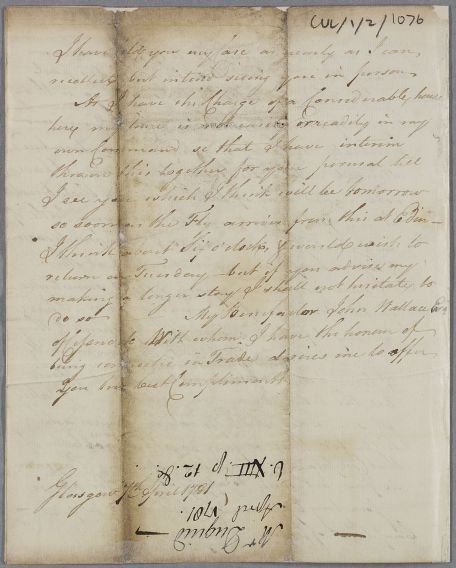 CUL/1/2/1076
I have told you my case as nearly as I can
recollect but intend seeing you in person
As I have the Charge of a Considerable house
here my time is not always readily in my
own Command so that I have interim
thrown this together for your perusal till
I see you which I think will be tomorrow
so soon as the Fly arrives from this at Edin-
I think about Six o'clock, I would wish to
return on Tuesday but if you advise my
making a longer stay I shall not hesitate to
do so My Benefactor John Wallace Esq
of With whom I have the honor of
being connected in Trade desires me to offer
you his best Compliments
Glasgow April 1781
Mr Duguid
April 1781.
V. XIII. p. 12. &c.